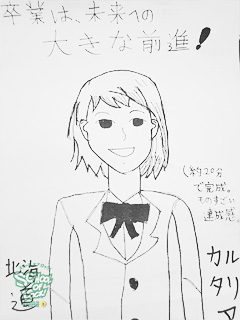 卒業は、未来への
大きな前進!
(約20分
で完成。
ものすごい
達成感。
カル
タリア
北海
道